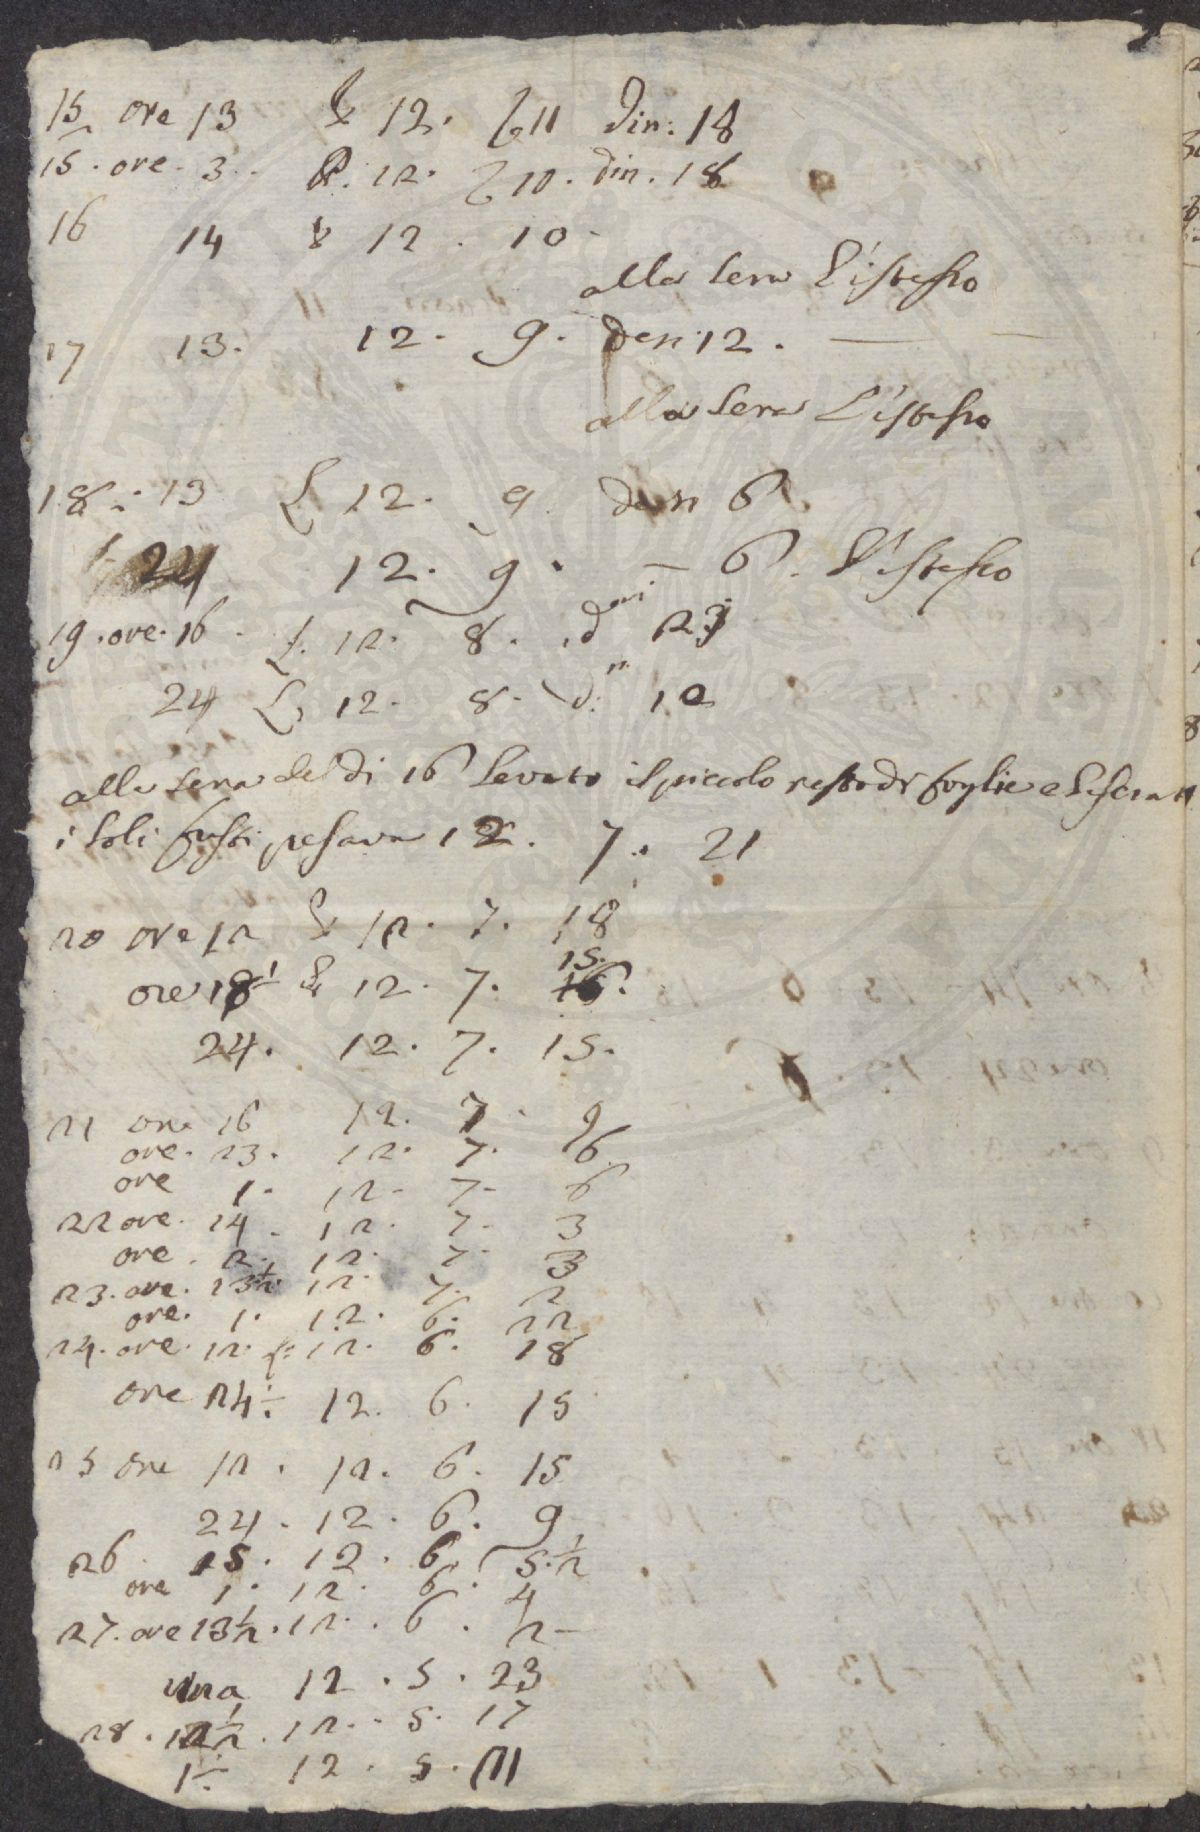 15 ore 13 L 12. ʒ 11 Din: 18
15. ore. 3. L. 12. ʒ 10. din. 18
16 14 L 12. 10
alla sera l'istesso
17 13. 12. 9. den 12.
alla sera l'istesso
18. 13 L 12. 9. den 6.
24 12. 9. — 6. l'istesso
19. ore. 16. L. 12. 8. dari 23
24 L 12. 8. d:n 12
alla sera del di 16 levato il piccolo resto di foglie e lisciati
i soli fusti pesava 12. 7. 21
20 ore 12 L 12. 7. 18
15.
ore 18 ½ L 12. 7. 16.
24. 12. 7. 15.
21 ore 16 12. 7. 9
ore. 23. 12. 7. 6
ore 1. 12. 7. 6
22 ore. 14. 12. 7. 3
ore. 2. 12. 7. 3
23. ore. 13½. 12. 7. 2
ore. 1. 12. 6. 22
24. ore. 12. L: 12. 6. 18
ore 24½ 12. 6. 15
25 ore 12. 12. 6. 15
24. 12. 6. 9
26. 15. 12. 6. 5.½
ore 1. 12. 6. 4
27. ore 13½. 12. 6. 2
una 12. 5. 23
28. 12½. 12. 5. 17
1½ 12. 5. 11